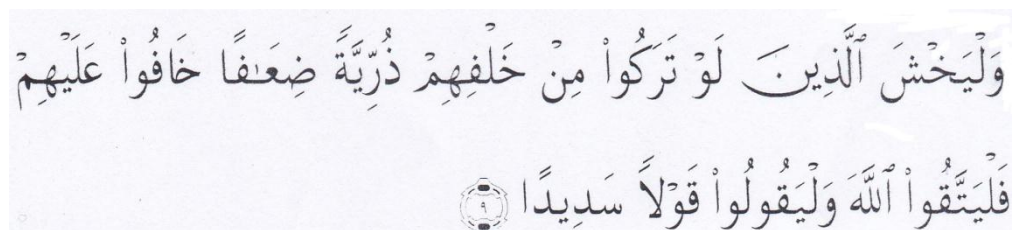 وَلْيَخْشَ ٱلَّذِينَ لَوْ تَرَكُوا۟ مِنْ خَلْفِهِمْ ذُرِّيَّةً ضِعَـٰفًا خَافُوا۟ عَلَيْهِمْ
فَلْيَتَّقُوا۟ ٱللَّهَ وَلْيَقُولُوا۟ قَوْلاً سَدِيدًا ۝٩